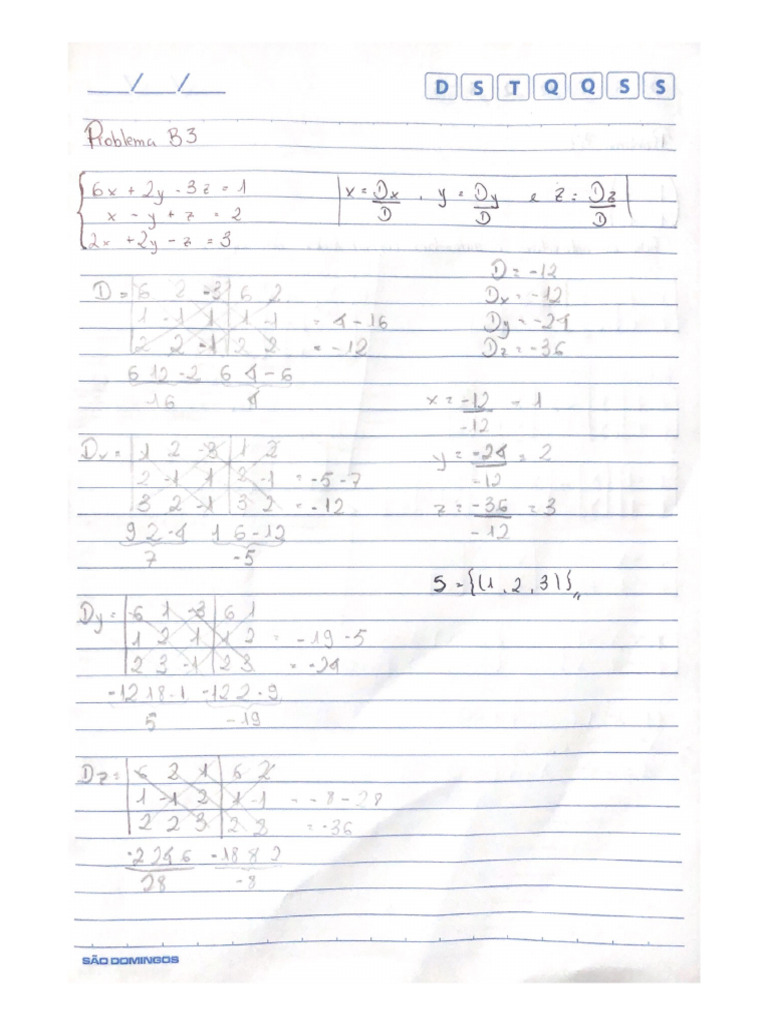 __/__/__ D S T Q Q S S
Problema B3
6x + 2y - 3z = 1
x - y + z = 2
2x + 2y - z = 3
x = Dx/D , y = Dy/D e z = Dz/D
D = -12
Dx = -12
Dy = -24
Dz = -36
D = 6 2 -3 6 2
1 -1 1 1 -1 = 4 - 16
2 2 -1 2 2 = -12
6 12 -2 6 4 -6
16 4
x = -12/-12 = 1
y = -24/-12 = 2
z = -36/-12 = 3
S = {(1, 2, 3)}
Dx = 1 2 -3 1 2
2 -1 1 2 -1 = -5 - 7
3 2 -1 3 2 = -12
9 2 -4 1 6 -12
7 -5
Dy = 6 1 -3 6 1
1 2 1 1 2 = -19 - 5
2 3 -1 2 3 = -24
-12 18 -1 -12 2 -9
5 -19
Dz = 6 2 1 6 2
1 -1 2 1 -1 = -8 - 28
2 2 3 2 2 = -36
-2 24 6 -18 8 2
28 -8
SÃO DOMINGOS